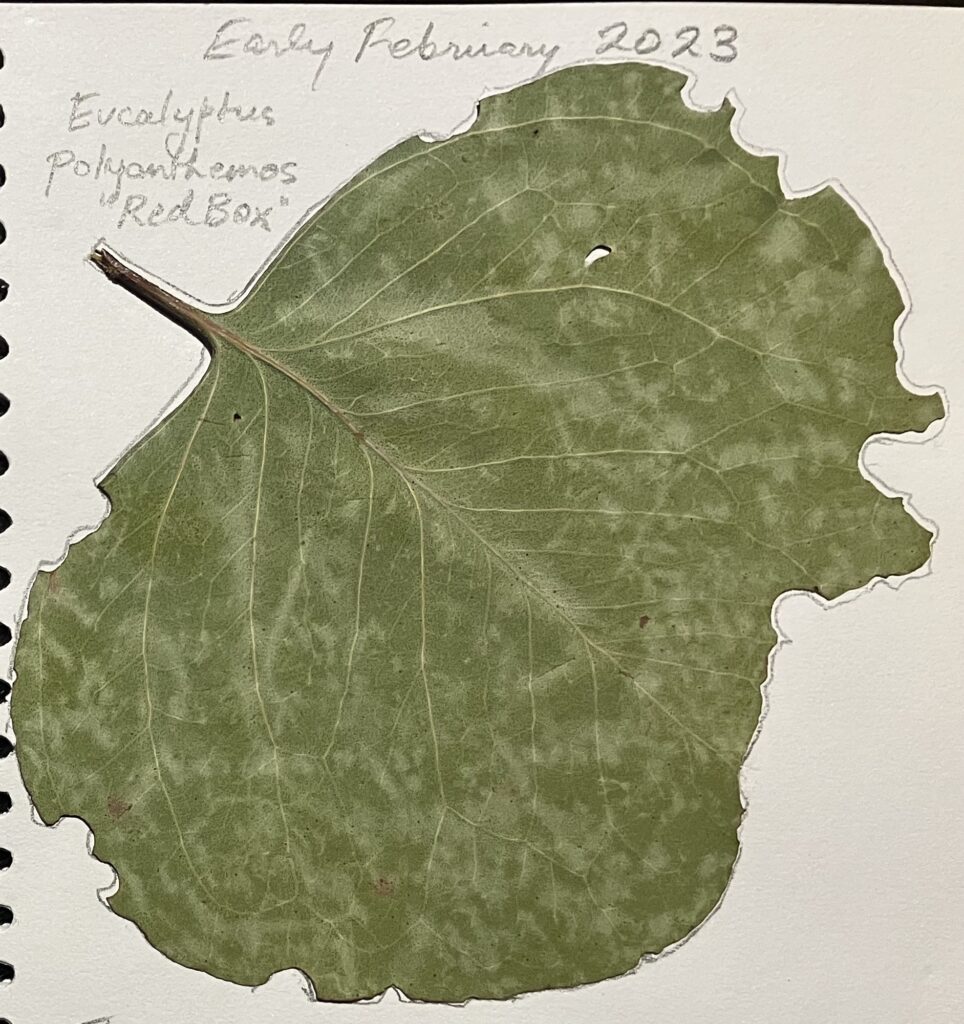 Early February 2023
Eucalyptus
Polyanthemos
"Red Box"